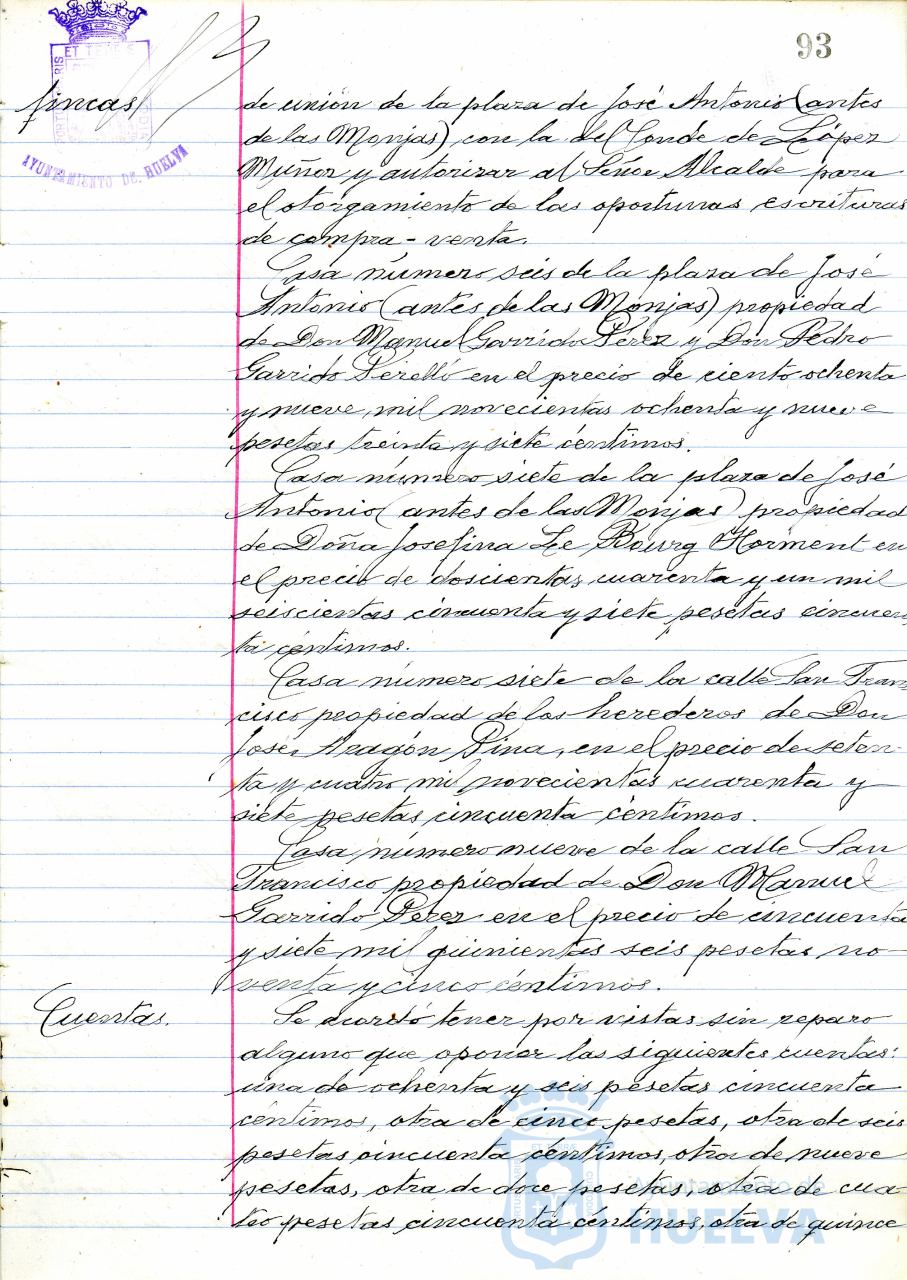 93
fincas
AYUNTAMIENTO DE HUELVA
de unión de la plaza de José Antonio (antes
de las Monjas) con la del Conde de López
Muñoz y autorizar al Señor Alcalde para
el otorgamiento de las oportunas escrituras
de compra-venta.
Casa número seis de la plaza de José
Antonio (antes de las Monjas) propiedad
de Don Manuel Garrido Pérez y Don Pedro
Garrido Perelló en el precio de ciento ochenta
y nueve mil novecientas ochenta y nueve
pesetas treinta y siete céntimos.
Casa número siete de la plaza de José
Antonio (antes de las Monjas) propiedad
de Doña Josefina Le Bourg Horment en
el precio de doscientas cuarenta y un mil
seiscientas cincuenta y siete pesetas cincuen
ta céntimos.
Casa número siete de la calle San Fran
cisco propiedad de los herederos de Don
José Aragón Pina, en el precio de seten-
ta y cuatro mil novecientas cuarenta y
siete pesetas cincuenta céntimos.
Casa número nueve de la calle San
Francisco propiedad de Don Manuel
Garrido Pérez en el precio de cincuenta
y siete mil quinientas seis pesetas no-
venta y cinco céntimos.
Cuentas.
Se acordó tener por vistas sin reparo
alguno que oponer las siguientes cuentas:
una de ochenta y seis pesetas cincuenta
céntimos, otra de cinco pesetas, otra de seis
pesetas cincuenta céntimos, otra de nueve
pesetas, otra de doce pesetas, otra de cua
tro pesetas cincuenta céntimos, otra de quince
Ayuntamiento de
HUELVA